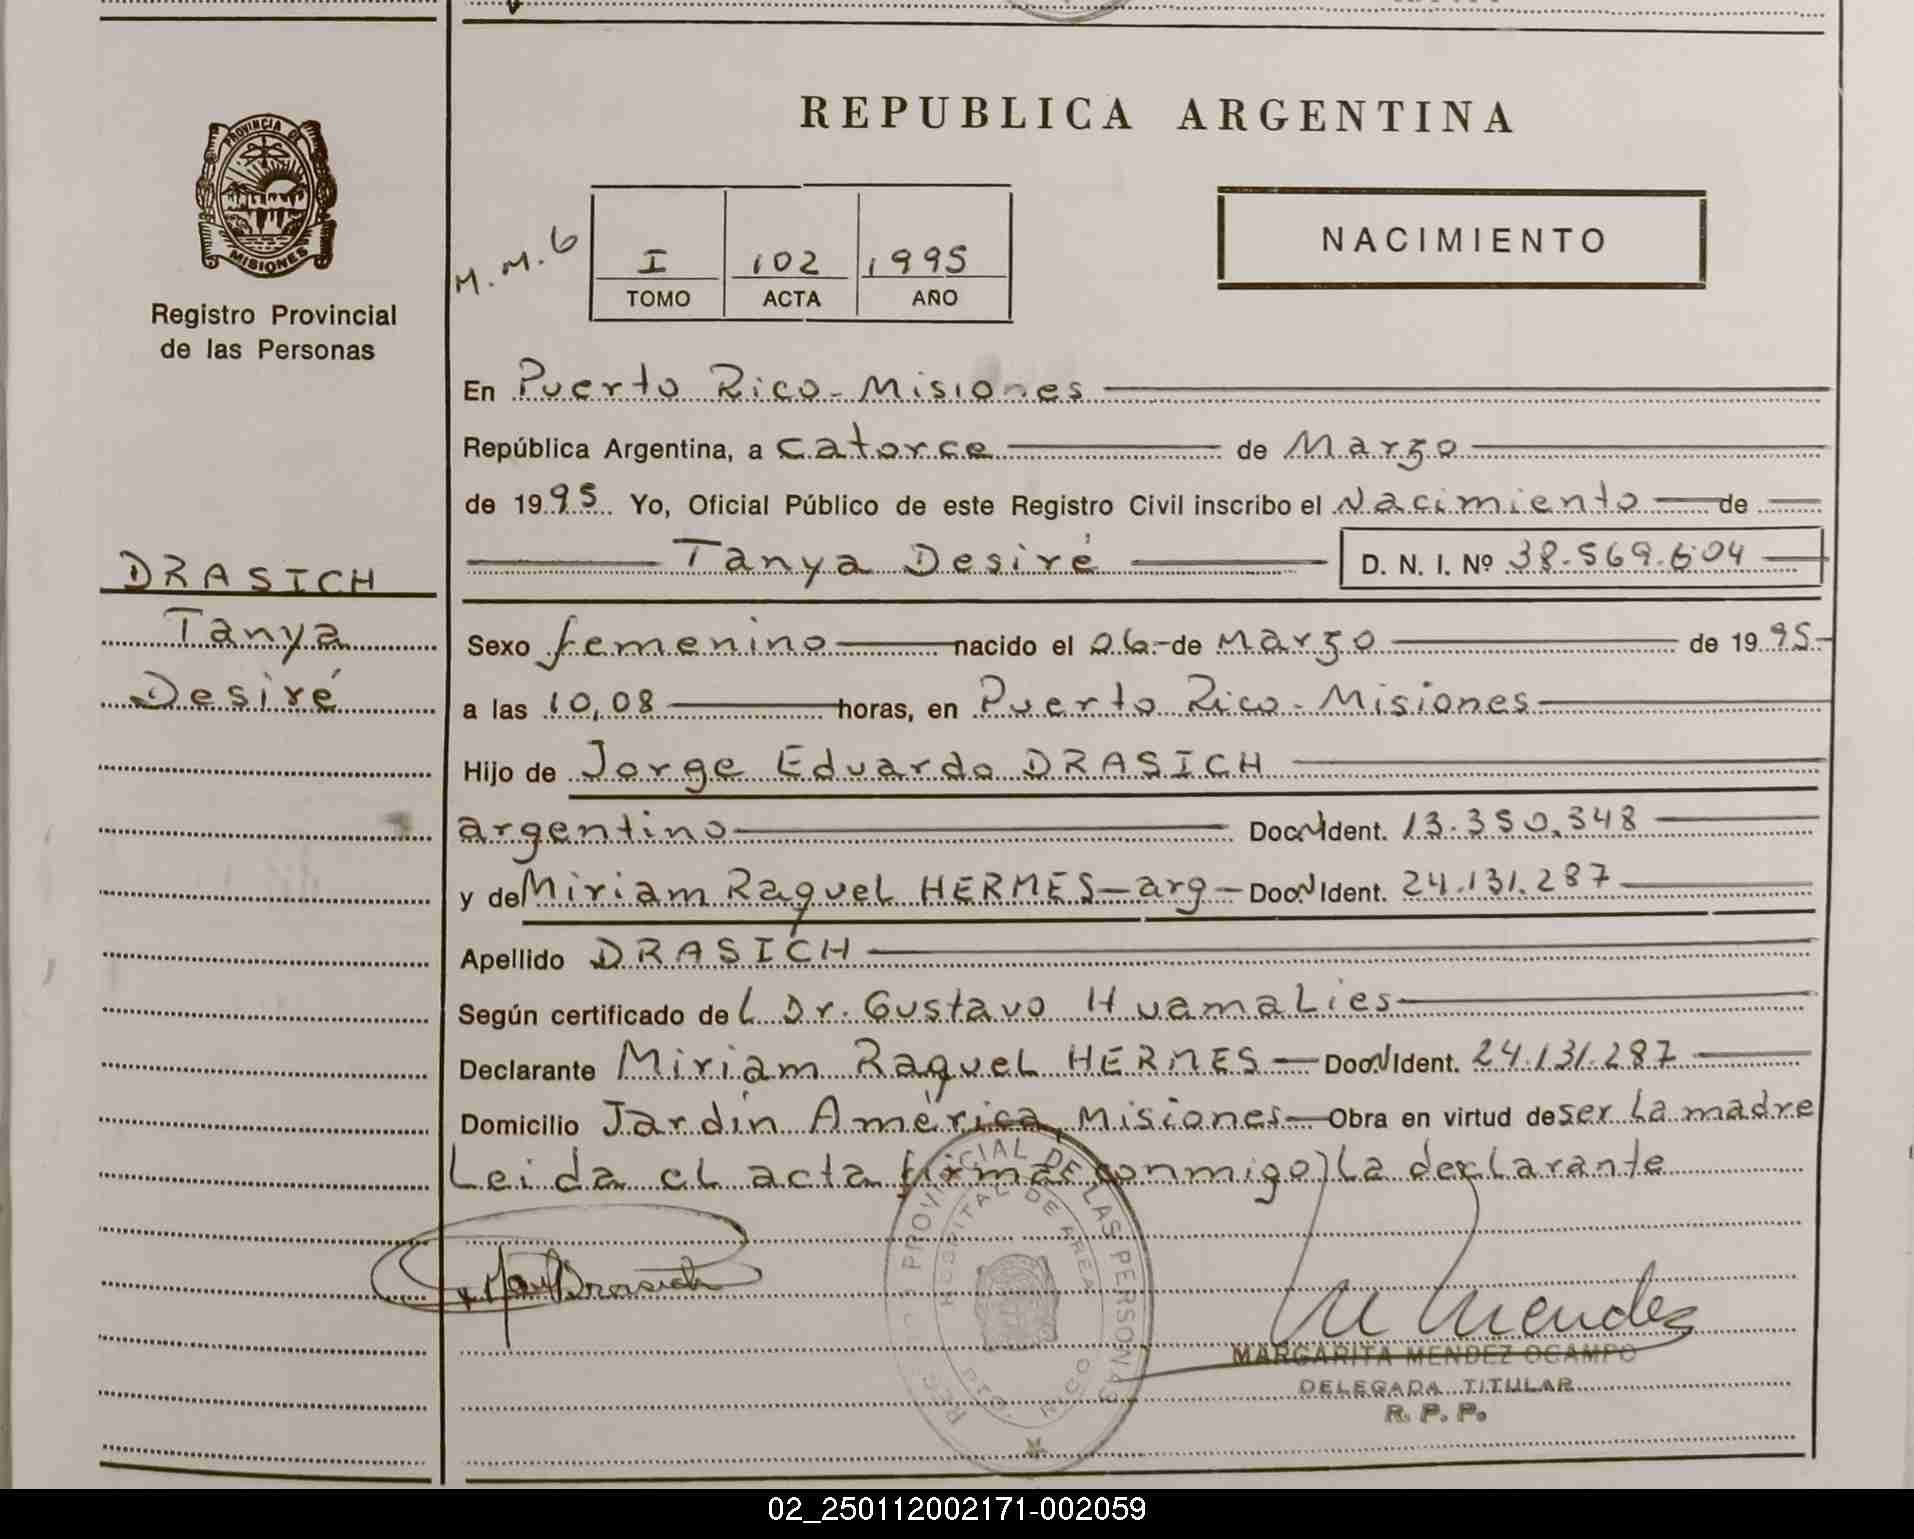 PROVINCIA DE
MISIONES
Registro Provincial
de las Personas
DRASICH
Tanya
Desiré
REPUBLICA ARGENTINA
M.M.6
I 102 1995
TOMO ACTA AÑO
NACIMIENTO
En Puerto Rico - Misiones
República Argentina, a catorce de Marzo
de 1995 Yo, Oficial Público de este Registro Civil inscribo el Nacimiento de
Tanya Desiré D. N. I. Nº 38.569.604
Sexo femenino nacido el 06 de Marzo de 1995
a las 10,08 horas, en Puerto Rico - Misiones
Hijo de Jorge Eduardo DRASICH
argentino Doc. N Ident. 13.350.348
y de Miriam Raquel HERMES - arg - Doc. N Ident. 24.131.287
Apellido DRASICH
Según certificado del Dr. Gustavo Huamalies
Declarante Miriam Raquel HERMES Doc. N Ident. 24.131.287
Domicilio Jardín América, Misiones Obra en virtud de ser la madre
Leida el acta firma conmigo la declarante
PROVINCIAL DE LAS PERSONAS
HOSPITAL DE AREA
M Mendez
MARGARITA MENDEZ OCAMPO
DELEGADA TITULAR
R. P. P.
02_250112002171-002059